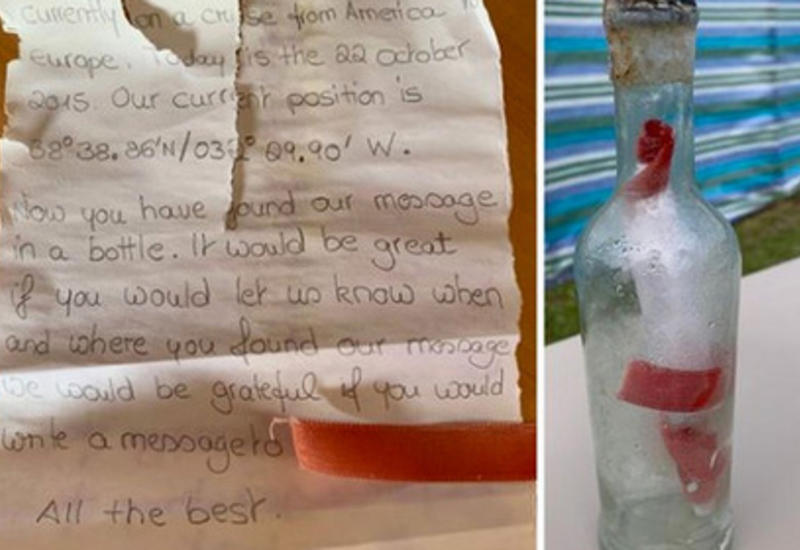 currently on a cruise from America to
Europe. Today is the 22 october
2015. Our current position is
38°38.86'N/032° 09.90' W.
Now you have found our message
in a bottle. It would be great
if you would let us know when
and where you found our message
We would be grateful if you would
write a message to
All the best.